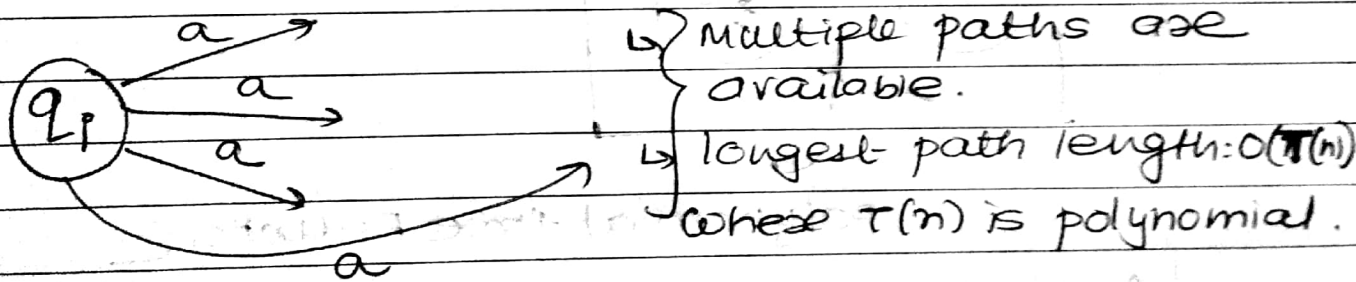 a
↳ Multiple paths are
a
available.
qi
a
↳ longest path length: O(T(n))
where T(n) is polynomial.
a